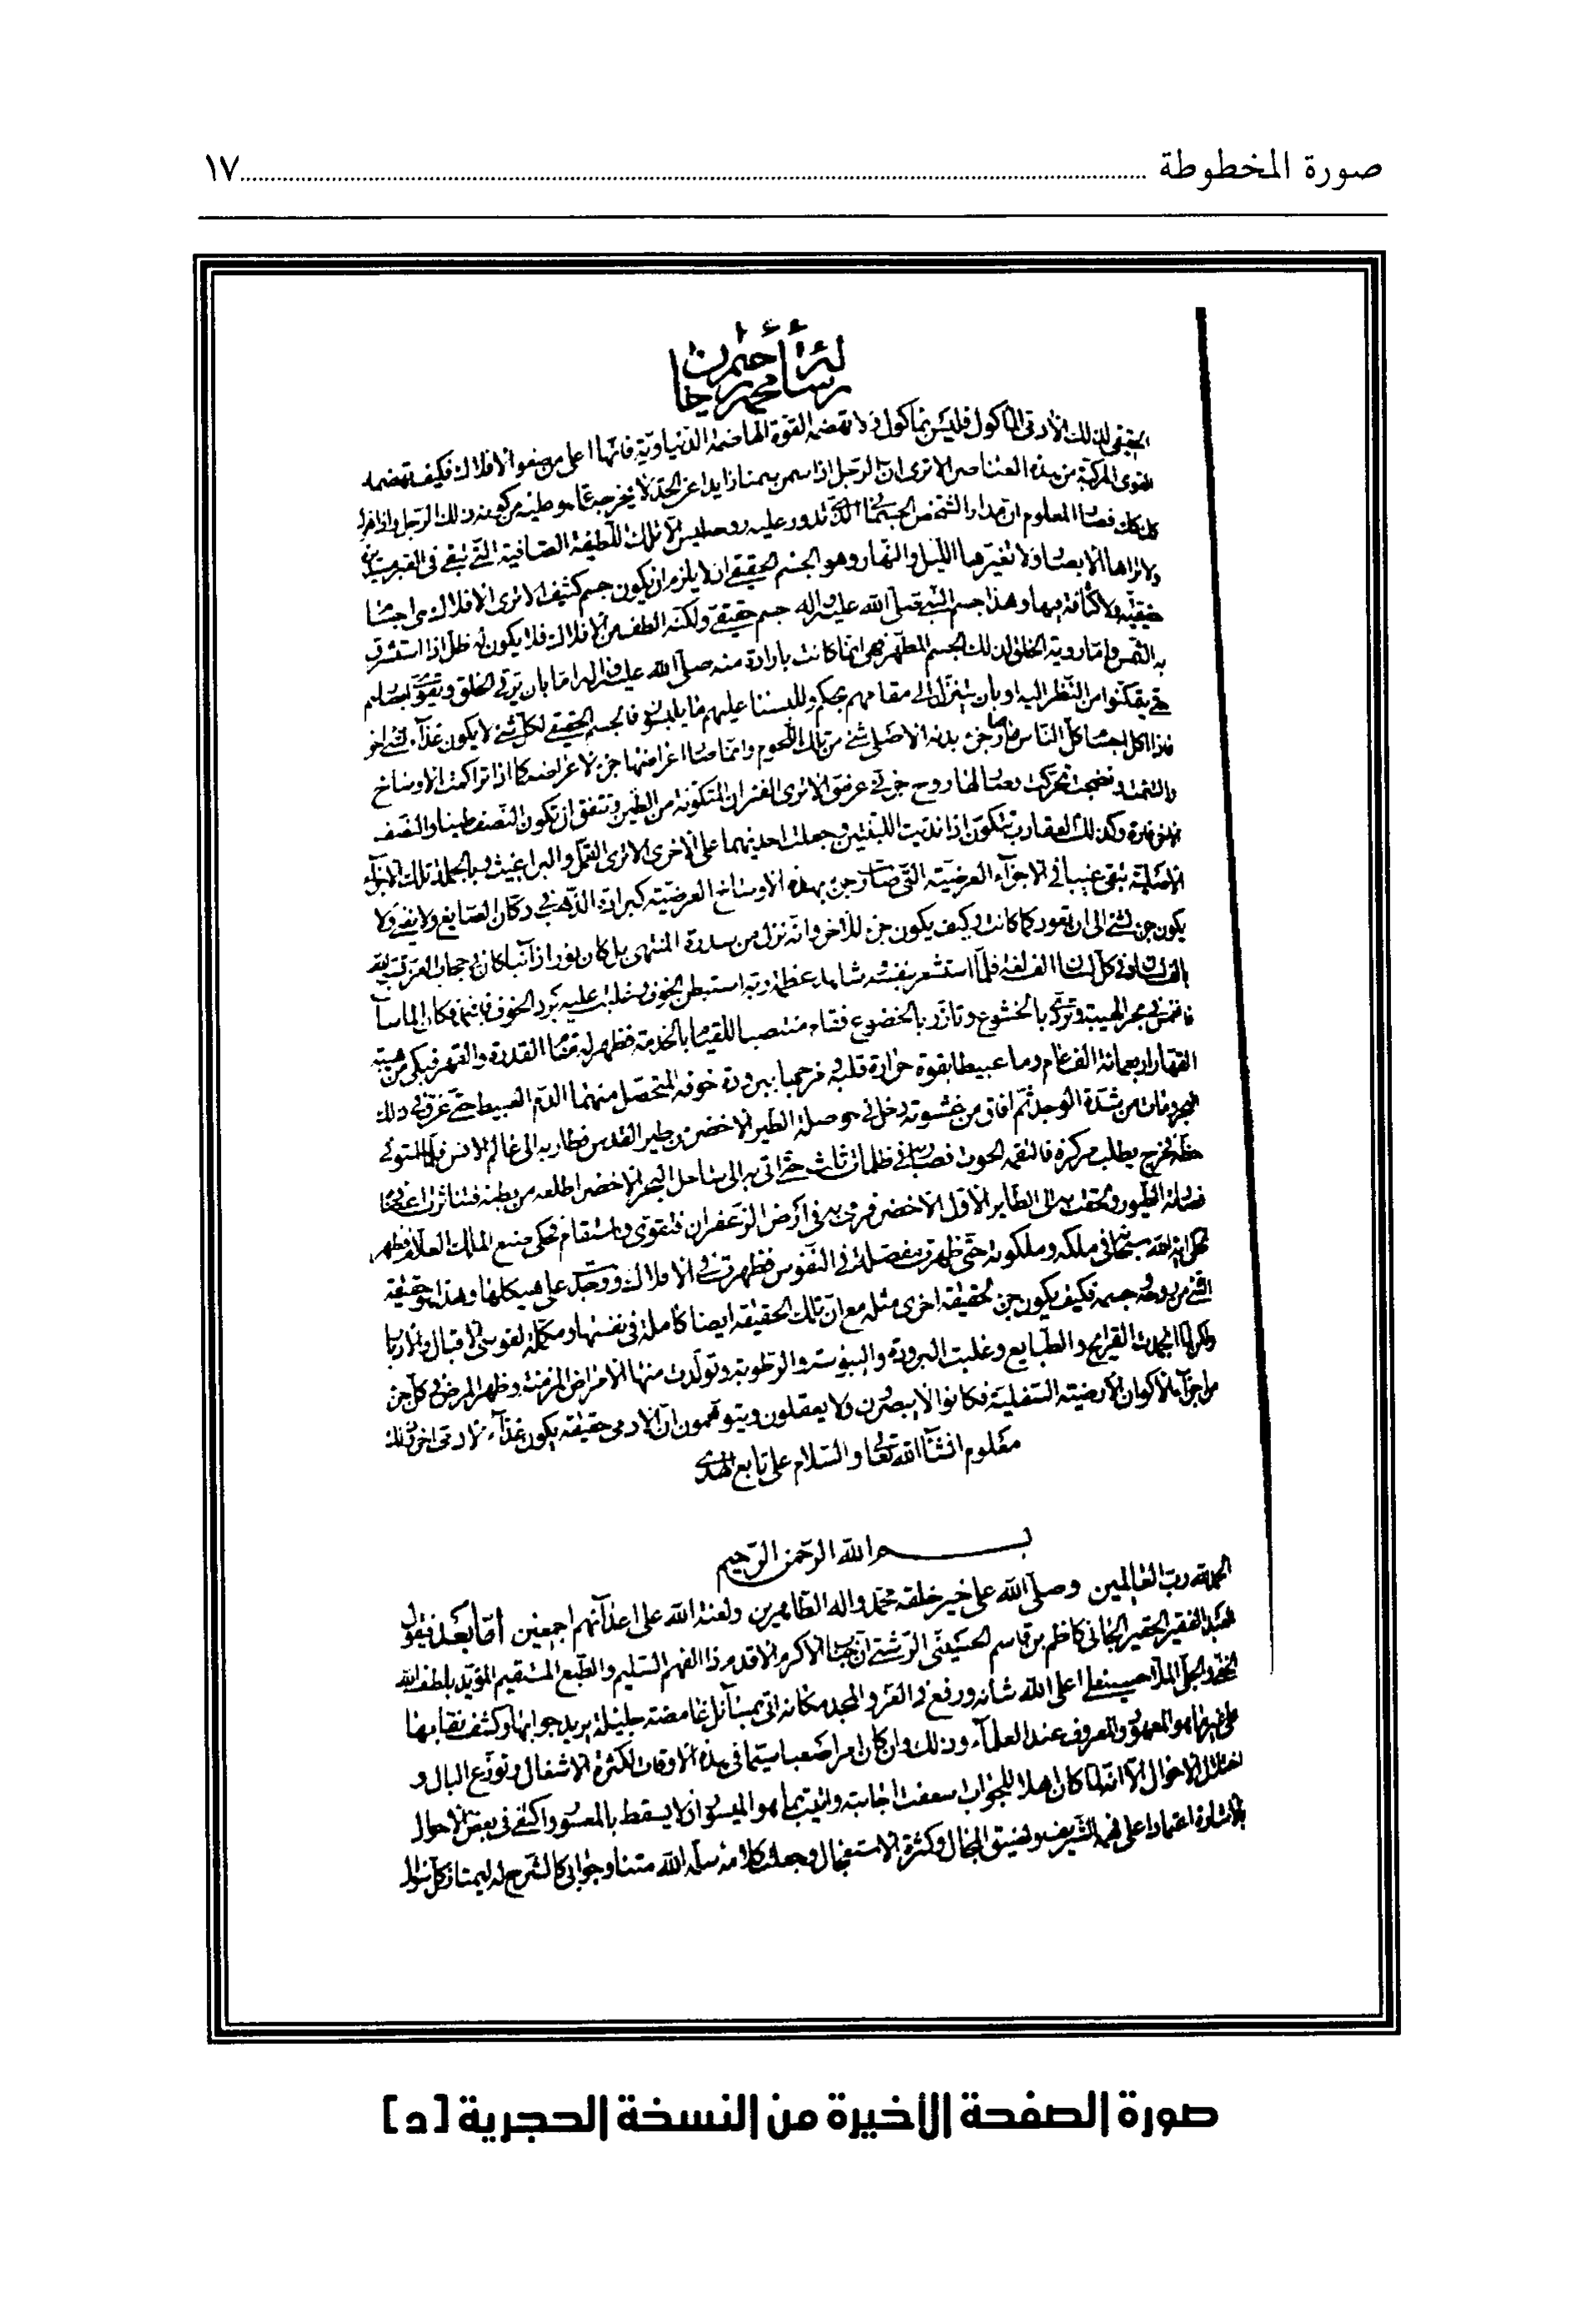 صورة المخطوطة ........ ١٧
الحقيقي لذلك الآدمي المأكول فليس بمأكول اذ لا تهضمه القوة الهاضمة الدنياوية فانها اعلى من صفو الافلاك فكيف تهضمه
القوى المركبة من هذه العناصر الا ترى ان الرجل اذا سمن سمنا زايدا عن الحد لا يخرج عما هو عليه من كونه ذلك الرجل واذا
المعلوم ان مدار الشخص الجسماني الذي تدور عليه روحه ليس الا تلك اللطيفة الصافية التي تبقى في القبر مستديرة
ولا تراها الابصار ولا تغيرها الليل والنهار وهو الجسم الحقيقي اذ لا يلزم ان يكون جسم كثيف الا ترى الافلاك هي اجسام
حقيقية ولا كثافة فيها وهذا جسم النبي صلى الله عليه واله جسم حقيقي ولكنه الطف من الافلاك فلا يكون له ظل اذا استشرق
به الشمس واما روية الخلق لذلك الجسم المطهر فهي انما كانت بارادة منه صلى الله عليه واله اما بان يرقي الخلق ويقوي ابصارهم
حتى يتمكنوا من النظر اليه او بان يتنزل الى مقامهم بحكم وللبسنا عليهم ما يلبسون فالجسم الحقيقي لكل شيء لا يكون غذاء لشيء اخر
فاذا اكل اجسام كل الناس ما صار جزء بدنه الاصلي شيء من تلك اللحوم وانما صار اعراضها جزء لاعراضه كما اذا تراكمت الاوساخ
نضجت تحركت وصار لها روح جزئي عرضي الا ترى الفئران المتكونة من الطين وتتفق ان تكون النصف طينا والنصف
وكذلك العقارب تتكون اذا نديت اللبنتين وجعلت احديهما على الاخرى الا ترى القمل والبراغيث وبالجملة تلك الاجزاء
الاصلية تبقى غيبا في الاجزاء العرضية التي صارت جزء بهذه الاوساخ العرضية كبرادة الذهب في دكان الصايغ ولا يفنى ولا
يكون جزء لشيء الى ان تعود كما كانت وكيف يكون جزء للاخر وانه نزل من سدرة المنتهى بل كان نورا
في كل لسان الف لغة فلما استشعر بنفسه شاهد عظمة ربه استبطن الخوف وغلبت عليه برد الخوف
في بحر الهيبة وتردى بالخشوع وتازر بالخضوع فقام منتصبا للقيام بالخدمة فظهر له مقام القدرة والقهر فبكى من هيبة
القهار اربعمائة الف عام دما عبيطا بقوة حرارة قلبه ومزجها ببرودة خوفه المتحصل منهما الدم العبيط حتى غرق في ذلك
البحر ومات من شدة الوجد ثم افاق من غشوته دخل في حوصلة الطير الاخضر من طير القدس فطار به الى عالم الانس
فخرج يطلب مركزه فالتقمه الحوت فصار في ظلمات ثلث حتى اتى به الى ساحل البحر الاخضر اطلعه من بطنه
الطاير الاول الاخضر في ارض الزعفران فتقوى واستقام فحكى صنع الملك العلام فظهر
في ملكه وملكوته حتى ظهرت مفصلة في النفوس فظهرت في الافلاك ووجدت على هيكلها وهذا هو حقيقة
جسمه فكيف يكون جزء لحقيقة اخرى مثله مع ان تلك الحقيقة ايضا كاملة في نفسها ومكملة لقوسي الاقبال والادبار
القرايح والطبايع وغلبت البرودة واليبوسة والرطوبة وتولدت منها الامراض المزمنة وظهر المرض في كل جزء
من اجزاء الاكوان الارضية السفلية فكانوا لا يبصرون ولا يعقلون ويتوهمون ان الآدمي حقيقة يكون غذاء لآدمي اخر وذلك
معلوم انشاء الله تعالى والسلام على تابع الهدى
بسم الله الرحمن الرحيم
الحمد لله رب العالمين وصلى الله على خير خلقه محمد واله الطاهرين ولعنة الله على اعدائهم اجمعين اما بعد فيقول
العبد الفقير الحقير الجاني كاظم بن قاسم الحسيني الرشتي ان جناب الاكرم الاقدم ذا الفهم السليم والطبع المستقيم المؤيد بلطف الله
الملا حسينعلي اعلى الله شانه ورفع في العز والمجد مكانه اتى بمسائل غامضة جليلة يريد جوابها وكشف نقابها
هو المعهود والمعروف عند العلماء وذلك وان كان امرا صعبا سيما في هذه الاوقات لكثرة الاشغال وتوزع البال و
اختلال الاحوال الا انه لما كان اهلا للجواب سعفت اجابته واتيت بما هو الميسور اذ لا يسقط بالمعسور واكتفي في بعض الاحوال
بالاشارة اعتمادا على فهمه الشريف ولضيق المجال وكثرة الاستعجال وجعلت كلامه سلمه الله متنا وجوابي كالشرح له ليمتاز كل سؤال
صورة الصفحة الأخيرة من النسخة الحجرية [د]